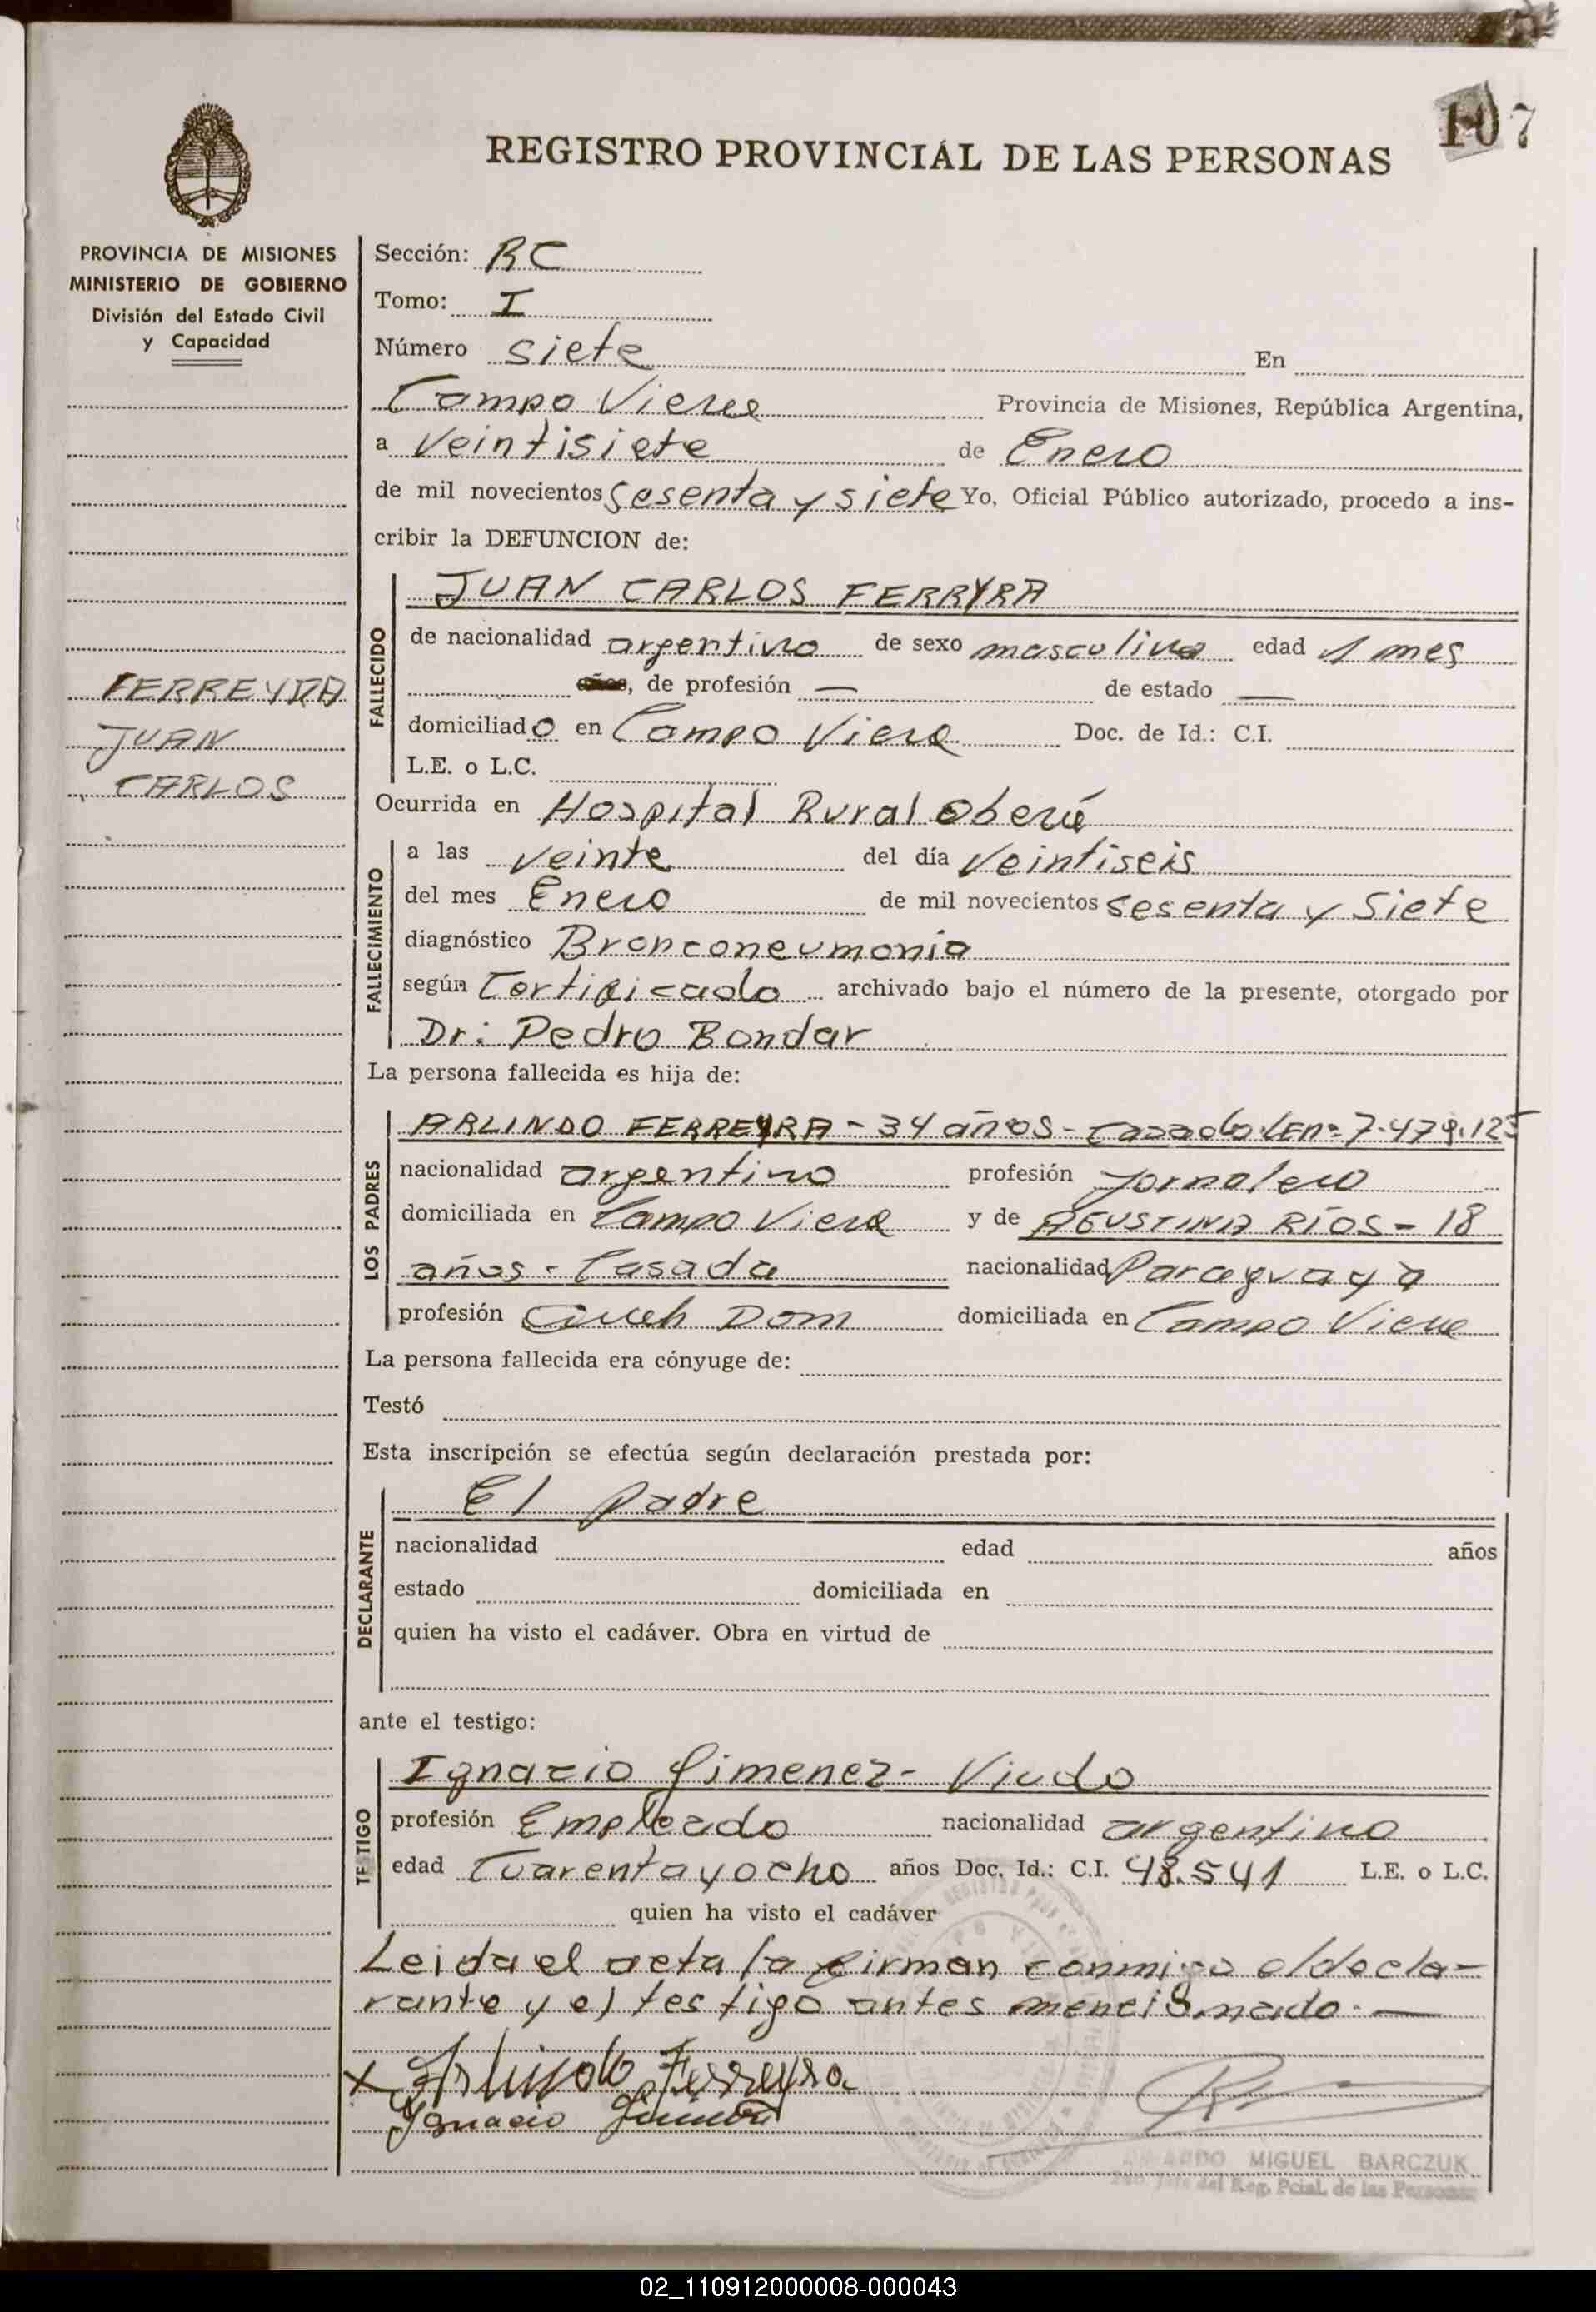 107
REGISTRO PROVINCIAL DE LAS PERSONAS
PROVINCIA DE MISIONES
MINISTERIO DE GOBIERNO
División del Estado Civil
y Capacidad
FERREYRA
JUAN
CARLOS
Sección: RC
Tomo: I
Número siete En
Campo Viera Provincia de Misiones, República Argentina,
a Veintisiete de Enero
de mil novecientos sesenta y siete Yo, Oficial Público autorizado, procedo a ins-
cribir la DEFUNCION de:
FALLECIDO
JUAN CARLOS FERRYRA
de nacionalidad argentino de sexo masculino edad 1 mes
años, de profesión — de estado —
domiciliado en Campo Viera Doc. de Id.: C.I.
L.E. o L.C.
Ocurrida en Hospital Rural Oberá
FALLECIMIENTO
a las veinte del día Veintiseis
del mes Enero de mil novecientos sesenta y Siete
diagnóstico Bronconeumonia
según Certificado archivado bajo el número de la presente, otorgado por
Dr: Pedro Bondar
La persona fallecida es hija de:
LOS PADRES
ARLINDO FERREYRA - 34 años - Casado LEnº 7.479.125
nacionalidad argentino profesión Jornalero
domiciliada en Campo Viera y de AGUSTINA RÍOS - 18
años - Casada nacionalidad Paraguaya
profesión Queh Dom domiciliada en Campo Viera
La persona fallecida era cónyuge de:
Testó
Esta inscripción se efectúa según declaración prestada por:
DECLARANTE
El padre
nacionalidad edad años
estado domiciliada en
quien ha visto el cadáver. Obra en virtud de
ante el testigo:
TESTIGO
Ignacio Gimenez - Viudo
profesión Empleado nacionalidad argentino
edad Cuarenta y ocho años Doc. Id.: C.I. 48.541 L.E. o L.C.
quien ha visto el cadáver
Leida el acta la firman conmigo el decla-
rante y el testigo antes mencionado. —
x Arlindo Ferreyra
Ignacio Gimenez
MIGUEL BARCZUK
del Reg. Pcial. de las Personas
02_110912000008-000043